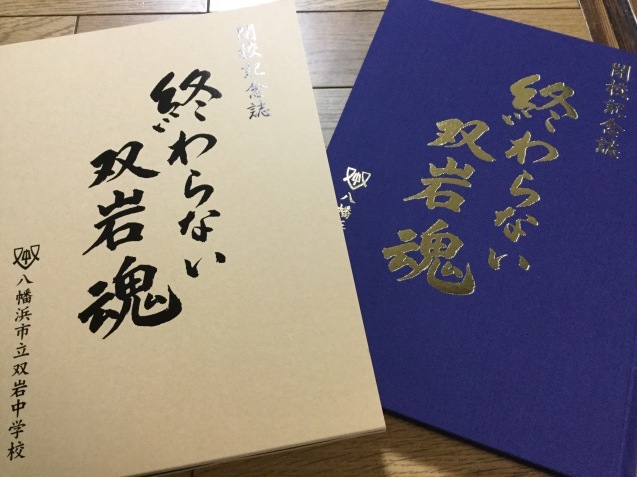 閉校記念誌
終わらない
双岩魂
八幡浜市立双岩中学校
閉校記念誌
終わらない
双岩魂
八幡